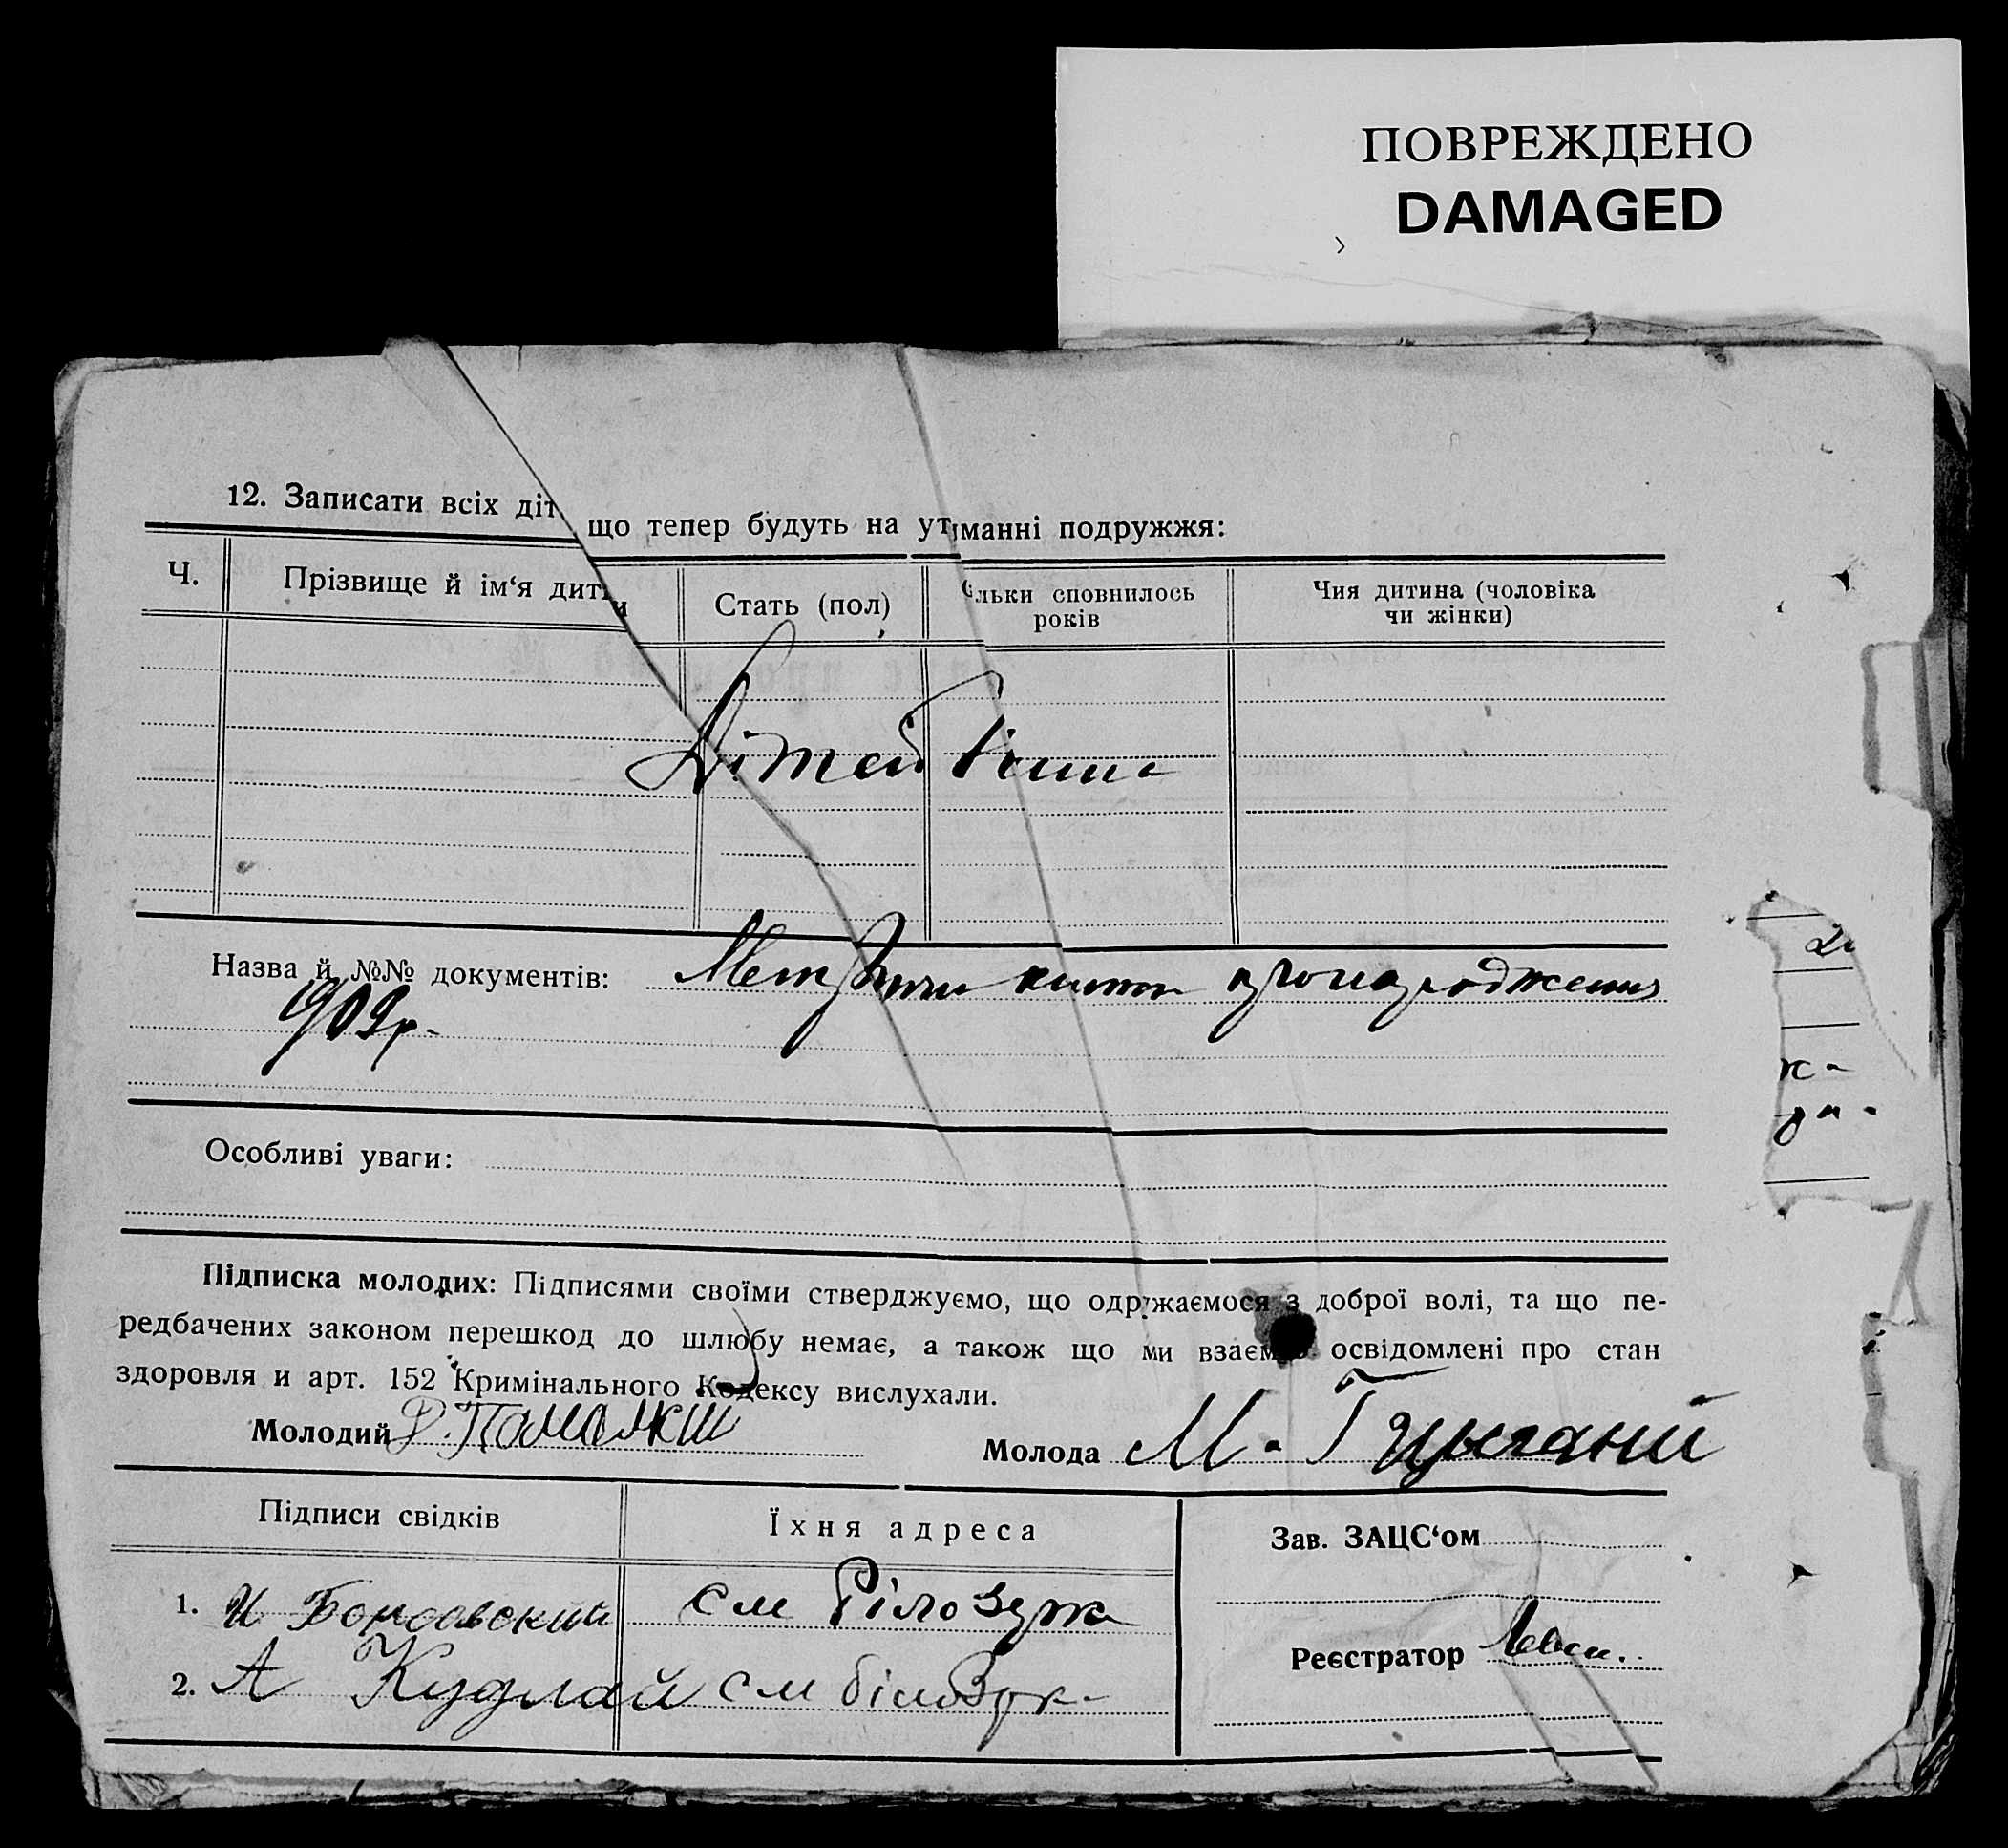 ПОВРЕЖДЕНО
DAMAGED
12. Записати всіх діт що тепер будуть на утиманні подружжя:
Ч.
Прізвище й ім‘я дити
Стать (пол)
льки сповнилось
років
Чия дитина (чоловіка
чи жінки)
Дітей
Назва й №№ документів: Метричні про народження
909р.
Особливі уваги:
Підписка молодих: Підписями своїми стверджуємо, що одружаємося з доброї волі, та що пе-
редбачених законом перешкод до шлюбу немає, а також що ми взаємно освідомлені про стан
здоровля и арт. 152 Кримінального Кодексу вислухали.
Молодий
Молода М.
Підписи свідків
Їхня адреса
Зав. ЗАЦС‘ом
1. И см Білозерка
Реєстратор
2. А Кудлай см